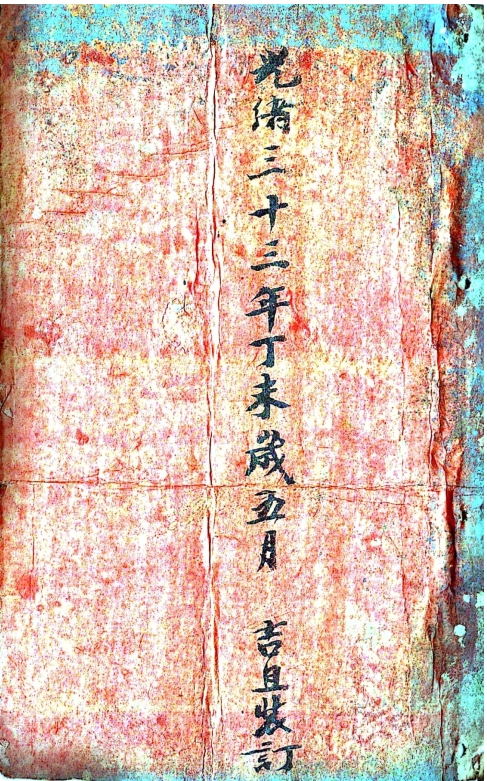 光緒三十三年丁未歲五月　吉旦裝訂